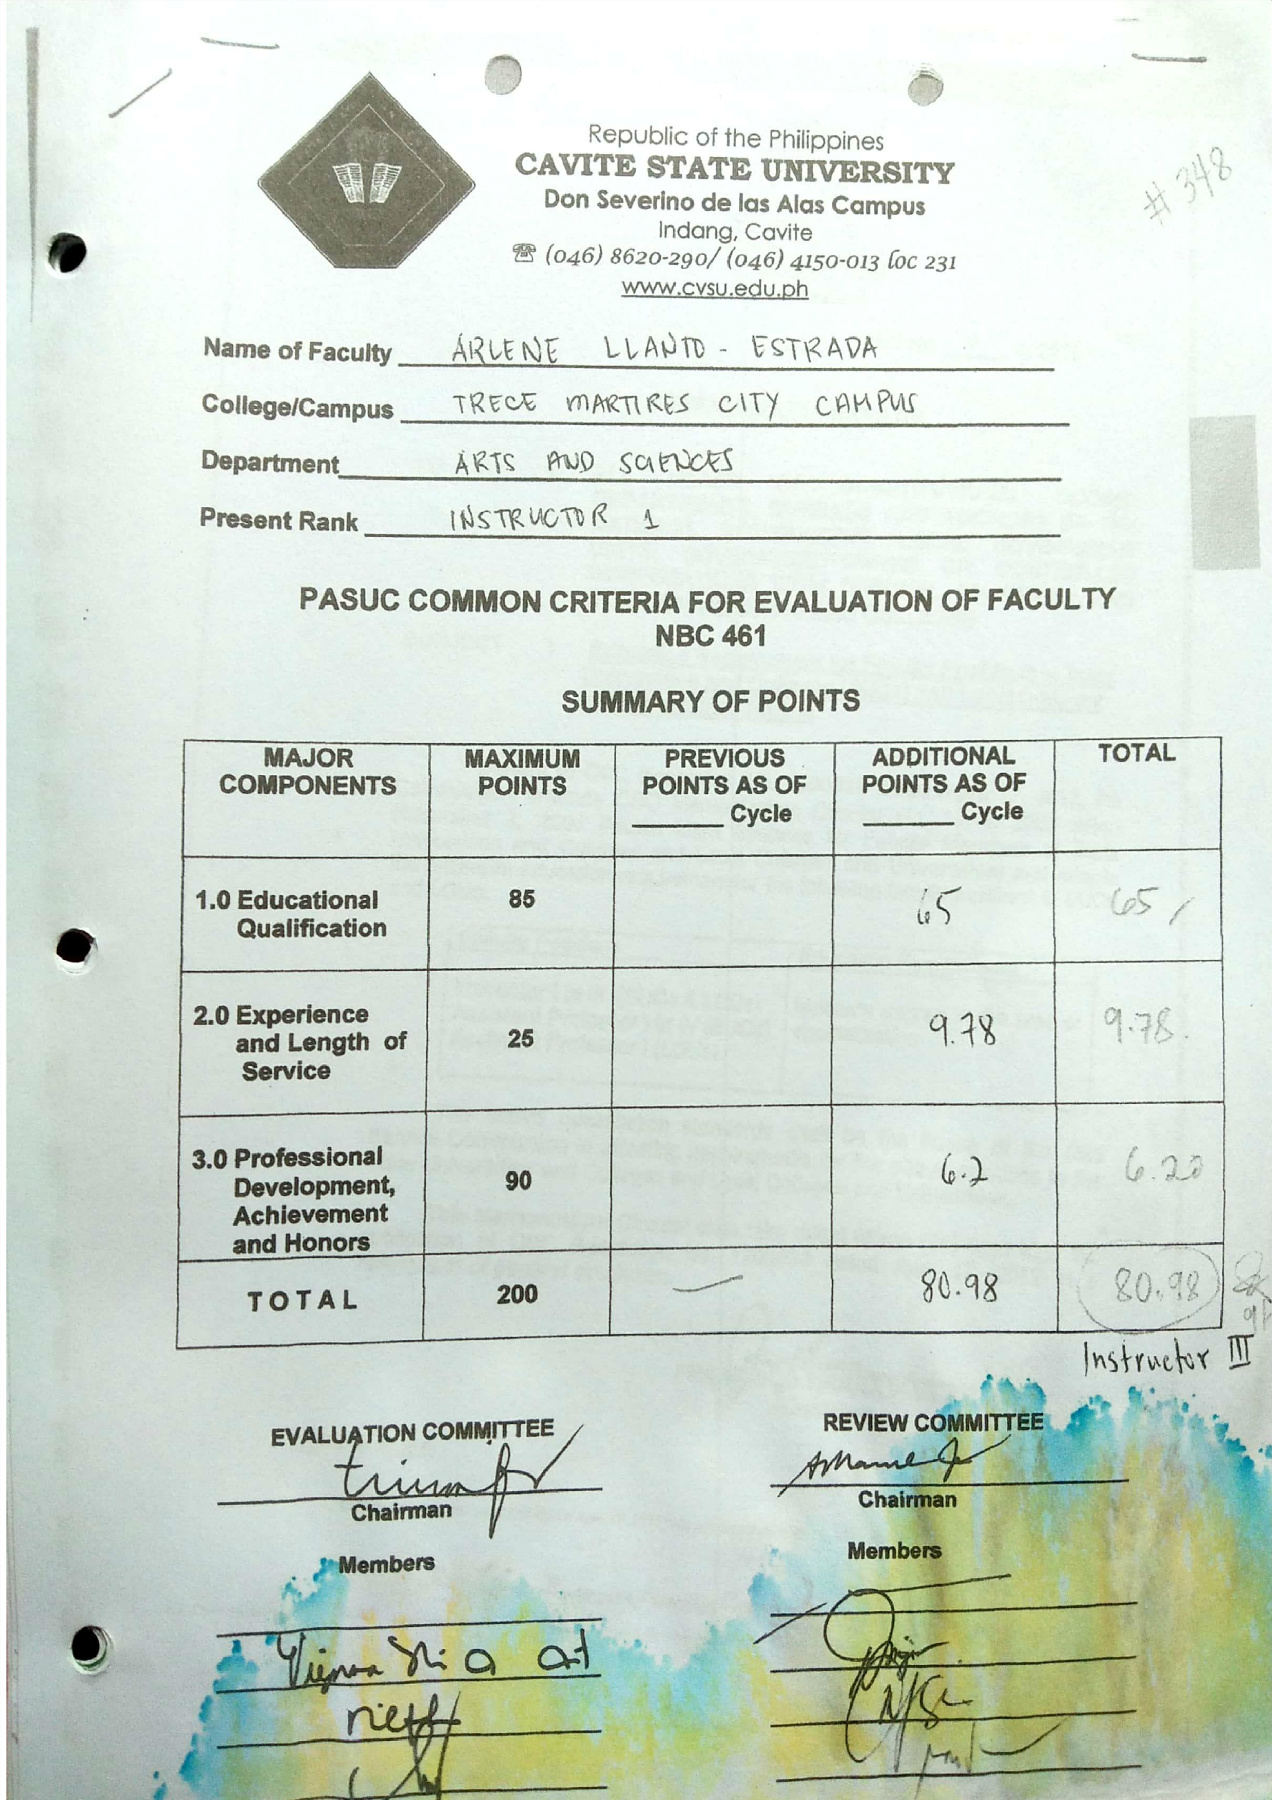 Republic of the Philippines
CAVITE STATE UNIVERSITY
Don Severino de las Alas Campus
Indang, Cavite
☎ (046) 8620-290/ (046) 4150-013 loc 231
www.cvsu.edu.ph
# 348
Name of Faculty ARLENE LLANTO - ESTRADA
College/Campus TRECE MARTIRES CITY CAMPUS
Department ARTS AND SCIENCES
Present Rank INSTRUCTOR 1
PASUC COMMON CRITERIA FOR EVALUATION OF FACULTY
NBC 461
SUMMARY OF POINTS
MAJOR COMPONENTS MAXIMUM POINTS PREVIOUS POINTS AS OF ______ Cycle ADDITIONAL POINTS AS OF ______ Cycle TOTAL
1.0 Educational Qualification 85 65 65
2.0 Experience and Length of Service 25 9.78 9.78
3.0 Professional Development, Achievement and Honors 90 6.2 6.20
TOTAL 200 — 80.98 80.98
Instructor III
EVALUATION COMMITTEE REVIEW COMMITTEE
Chairman Chairman
Members Members